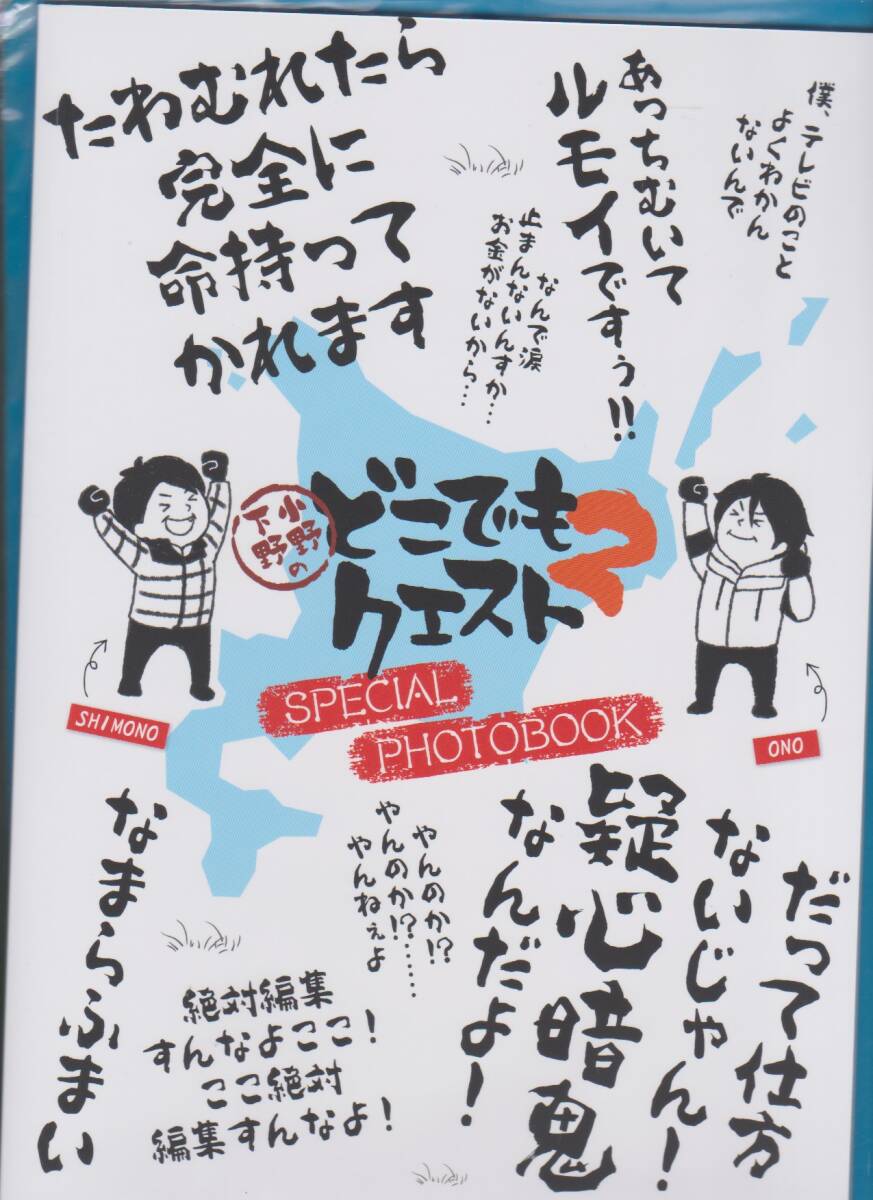 たわむれたら
完全に
命持って
かれます
あっちむいて
ルモイですぅ!!
僕、テレビのこと
よくわかん
ないんで
なんで涙
止まんないんすか…
お金がないから……
小野
下野の
どこでも
クエスト2
SPECIAL
PHOTOBOOK
SHIMONO
ONO
なまらふまい
やんのか!?
やんのか!?……
やんねぇよ
絶対編集
すんなよここ!
ここ絶対
編集すんなよ!
だって仕方
ないじゃん!
疑心暗鬼
なんだよ!